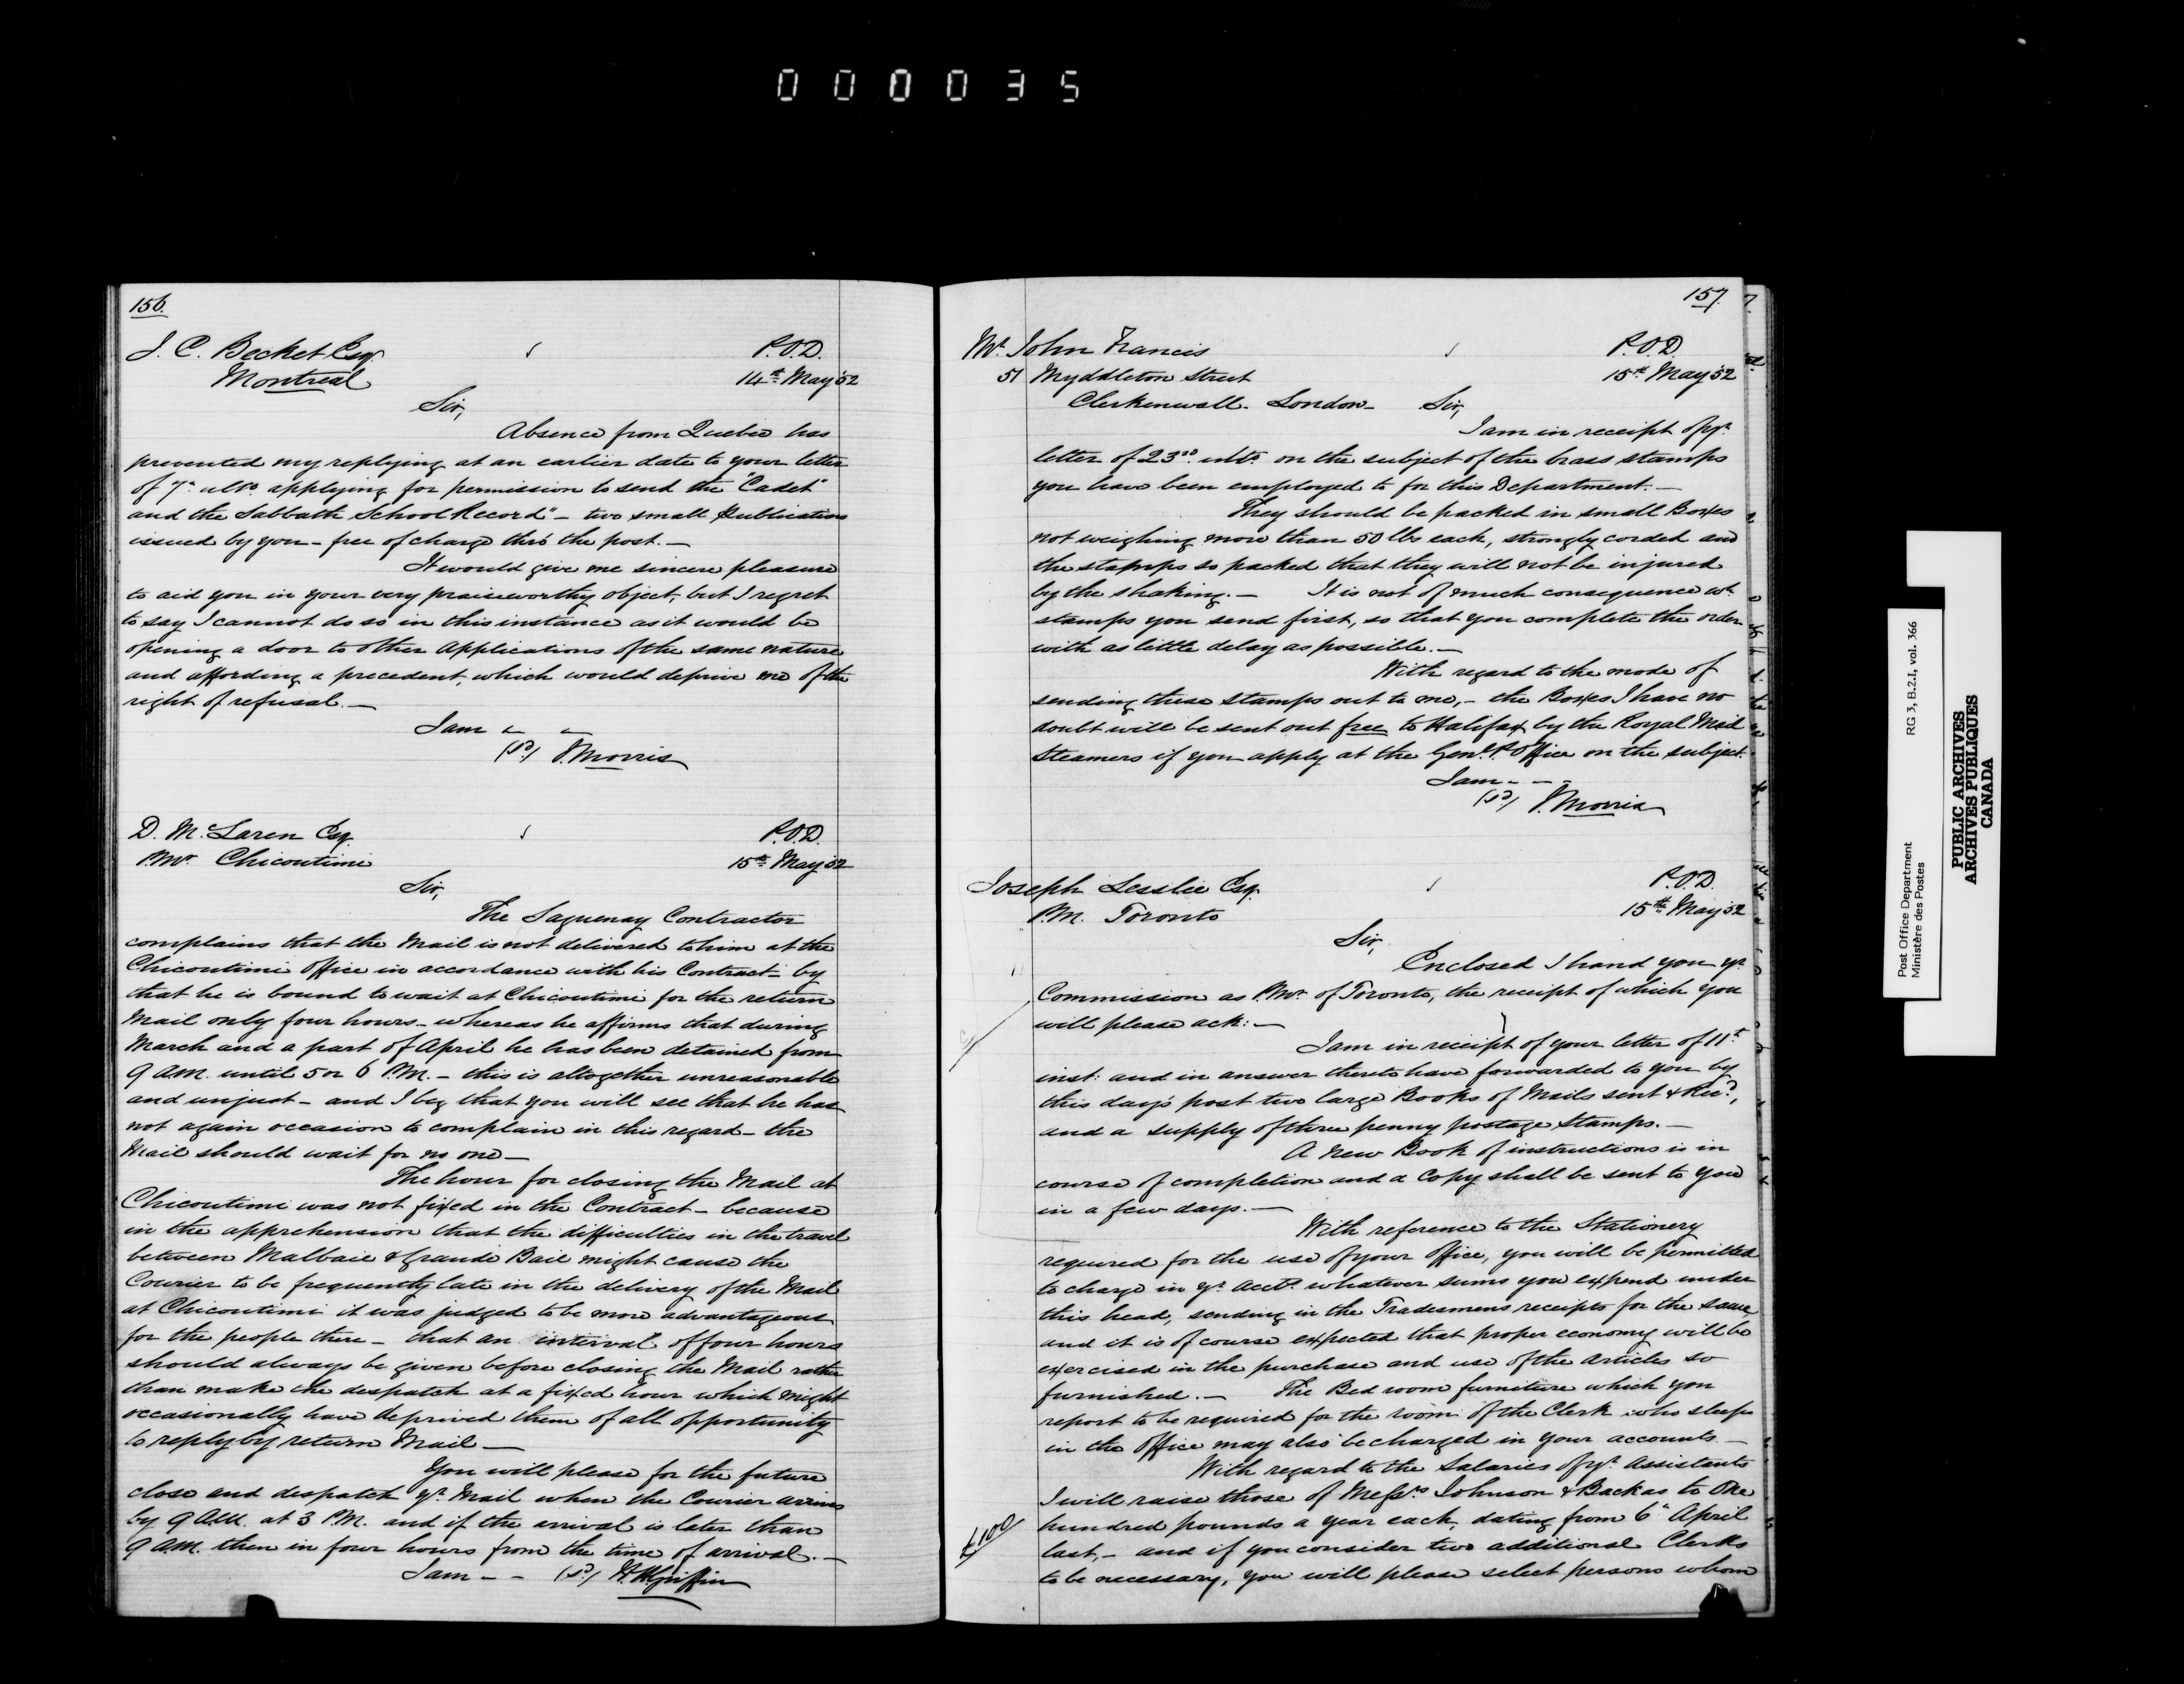 000035
156.
J. C. Becket Esqr. P.O.D.
Montreal 14th May '52
Sir,
Absence from Quebec has
prevented my replying at an earlier date to your letter
of 7th ulto. applying for permission to send the "Cadet"
and the Sabbath School Record" - two small Publications
issued by you - free of charge thro' the post. -
It would give me sincere pleasure
to aid you in your very praiseworthy object, but I regret
to say I cannot do so in this instance as it would be
opening a door to other Applications of the same nature
and affording a precedent, which would deprive me of the
right of refusal. -
I am " "
(sd) J. Morris
D. McLaren Esq. P.O.D.
P.Mr. Chicoutimi 15th May '52
Sir,
The Saguenay Contractor
complains that the Mail is not delivered to him at the
Chicoutimi Office in accordance with his Contract - by
that he is bound to wait at Chicoutimi for the return
Mail only four hours - whereas he affirms that during
March and a part of April he has been detained from
9 A.M. until 5 or 6 P.M. - this is altogether unreasonable
and unjust - and I beg that you will see that he has
not again occasion to complain in this regard - the
Mail should wait for no one -
The hour for closing the Mail at
Chicoutimi was not fixed in the Contract - because
in the apprehension that the difficulties in the travel
between Malbaie & Grande Baie might cause the
Courier to be frequently late in the delivery of the Mail
at Chicoutimi it was judged to be more advantageous
for the people there - that an interval of four hours
should always be given before closing the Mail rather
than make the despatch at a fixed hour which might
occasionally have deprived them of all opportunity
to reply by return Mail -
You will please for the future
close and despatch yr. Mail when the Courier arrives
by 9 A.M. at 3 P.M. and if the arrival is later than
9 A.M. then in four hours from the time of arrival. -
I am - - (sd) W.H. Griffin
157.
Mr. John Francis P.O.D.
51 Myddleton Street 15th May '52
Clerkenwall - London - Sir,
I am in receipt of yr.
letter of 23rd ulto. on the subject of the brass stamps
you have been employed to for this Department. -
They should be packed in small Boxes
not weighing more than 50 lbs each, strongly corded and
the stamps so packed that they will not be injured
by the shaking. - It is not of much consequence wt.
stamps you send first, so that you complete the order
with as little delay as possible. -
With regard to the mode of
sending these stamps out to me, - the Boxes I have no
doubt will be sent out free to Halifax by the Royal Mail
Steamers if you apply at the Genl. P. Office on the subject.
I am - - -
(sd) J. Morris
Joseph Lesslie Esq. P.O.D.
P.M. Toronto 15th May '52
Sir,
Enclosed I hand you yr.
Commission as P.Mr. of Toronto, the receipt of which you
will please ack: -
I am in receipt of your letter of 11th
inst: and in answer thereto have forwarded to you by
this day's post two large Books of Mails sent & Recd.,
and a supply of three penny postage Stamps. -
A new Book of instructions is in
course of completion and a Copy shall be sent to you
in a few days. -
With reference to the Stationery
required for the use of your Office, you will be permitted
to charge in yr. Accts. whatever sums you expend under
this head, sending in the Tradesmens receipts for the same
and it is of course expected that proper economy will be
exercised in the purchase and use of the Articles so
furnished. - The Bed room furniture which you
report to be required for the room of the Clerk who sleeps
in the Office may also be charged in your accounts. -
With regard to the Salaries of yr. Assistants
I will raise those of Messrs Johnson & Backas to One
£100 hundred pounds a year each, dating from 6th April
last, - and if you consider two additional Clerks
to be necessary, you will please select persons whom
Post Office Department RG 3, B.2.I, vol. 366
Ministère des Postes
PUBLIC ARCHIVES
ARCHIVES PUBLIQUES
CANADA